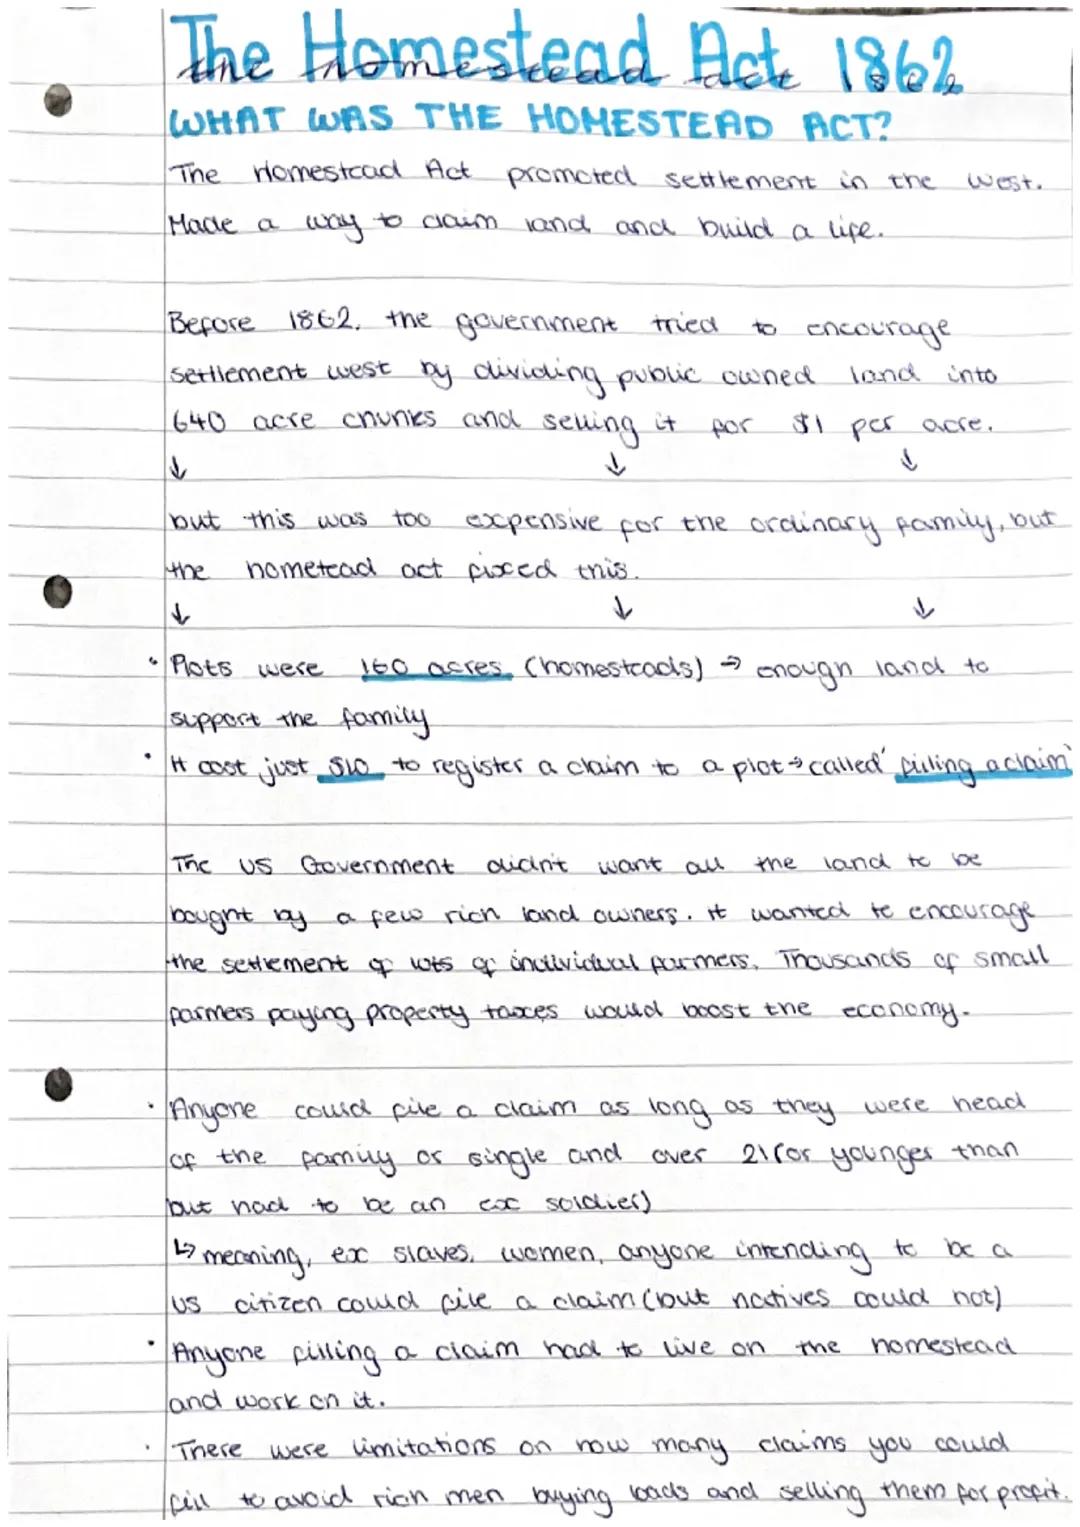 The Homestead Act 1862
the homestead act 1862
WHAT WAS THE HOMESTEAD ACT?
The Homestead Act promoted settlement in the west.
Made a way to claim land and build a life.
Before 1862, the government tried to encourage
settlement west by dividing public owned land into
640 acre chunks and selling it for $1 per acre.
↓ ↓ ↓
but this was too expensive for the ordinary family, but
the hometead act fixed this.
↓ ↓ ↓
• Plots were 160 acres (homesteads) → enough land to
support the family
• It cost just $10 to register a claim to a plot → called 'filling a claim'
The US Government didn't want all the land to be
bought by a few rich land owners. It wanted to encourage
the settlement of lots of individual farmers. Thousands of small
farmers paying property taxes would boost the economy.
• Anyone could file a claim as long as they were head
of the family or single and over 21 (or younger than
but had to be an ex soldier)
↳ meaning, ex slaves, women, anyone intending to be a
US citizen could file a claim (but natives could not)
• Anyone filling a claim had to live on the homestead
and work on it.
• There were limitations on how many claims you could
fill to avoid rich men buying loads and selling them for profit.